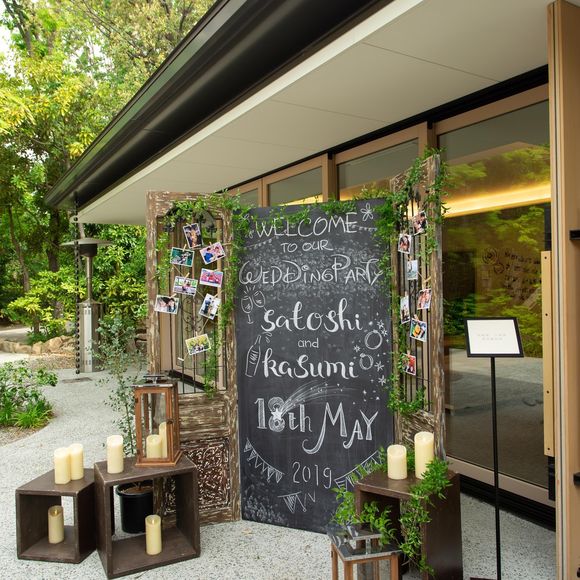 WELCOME
TO OUR
WEDDING PARTY
satoshi
and
kasumi
18th MAY
2019